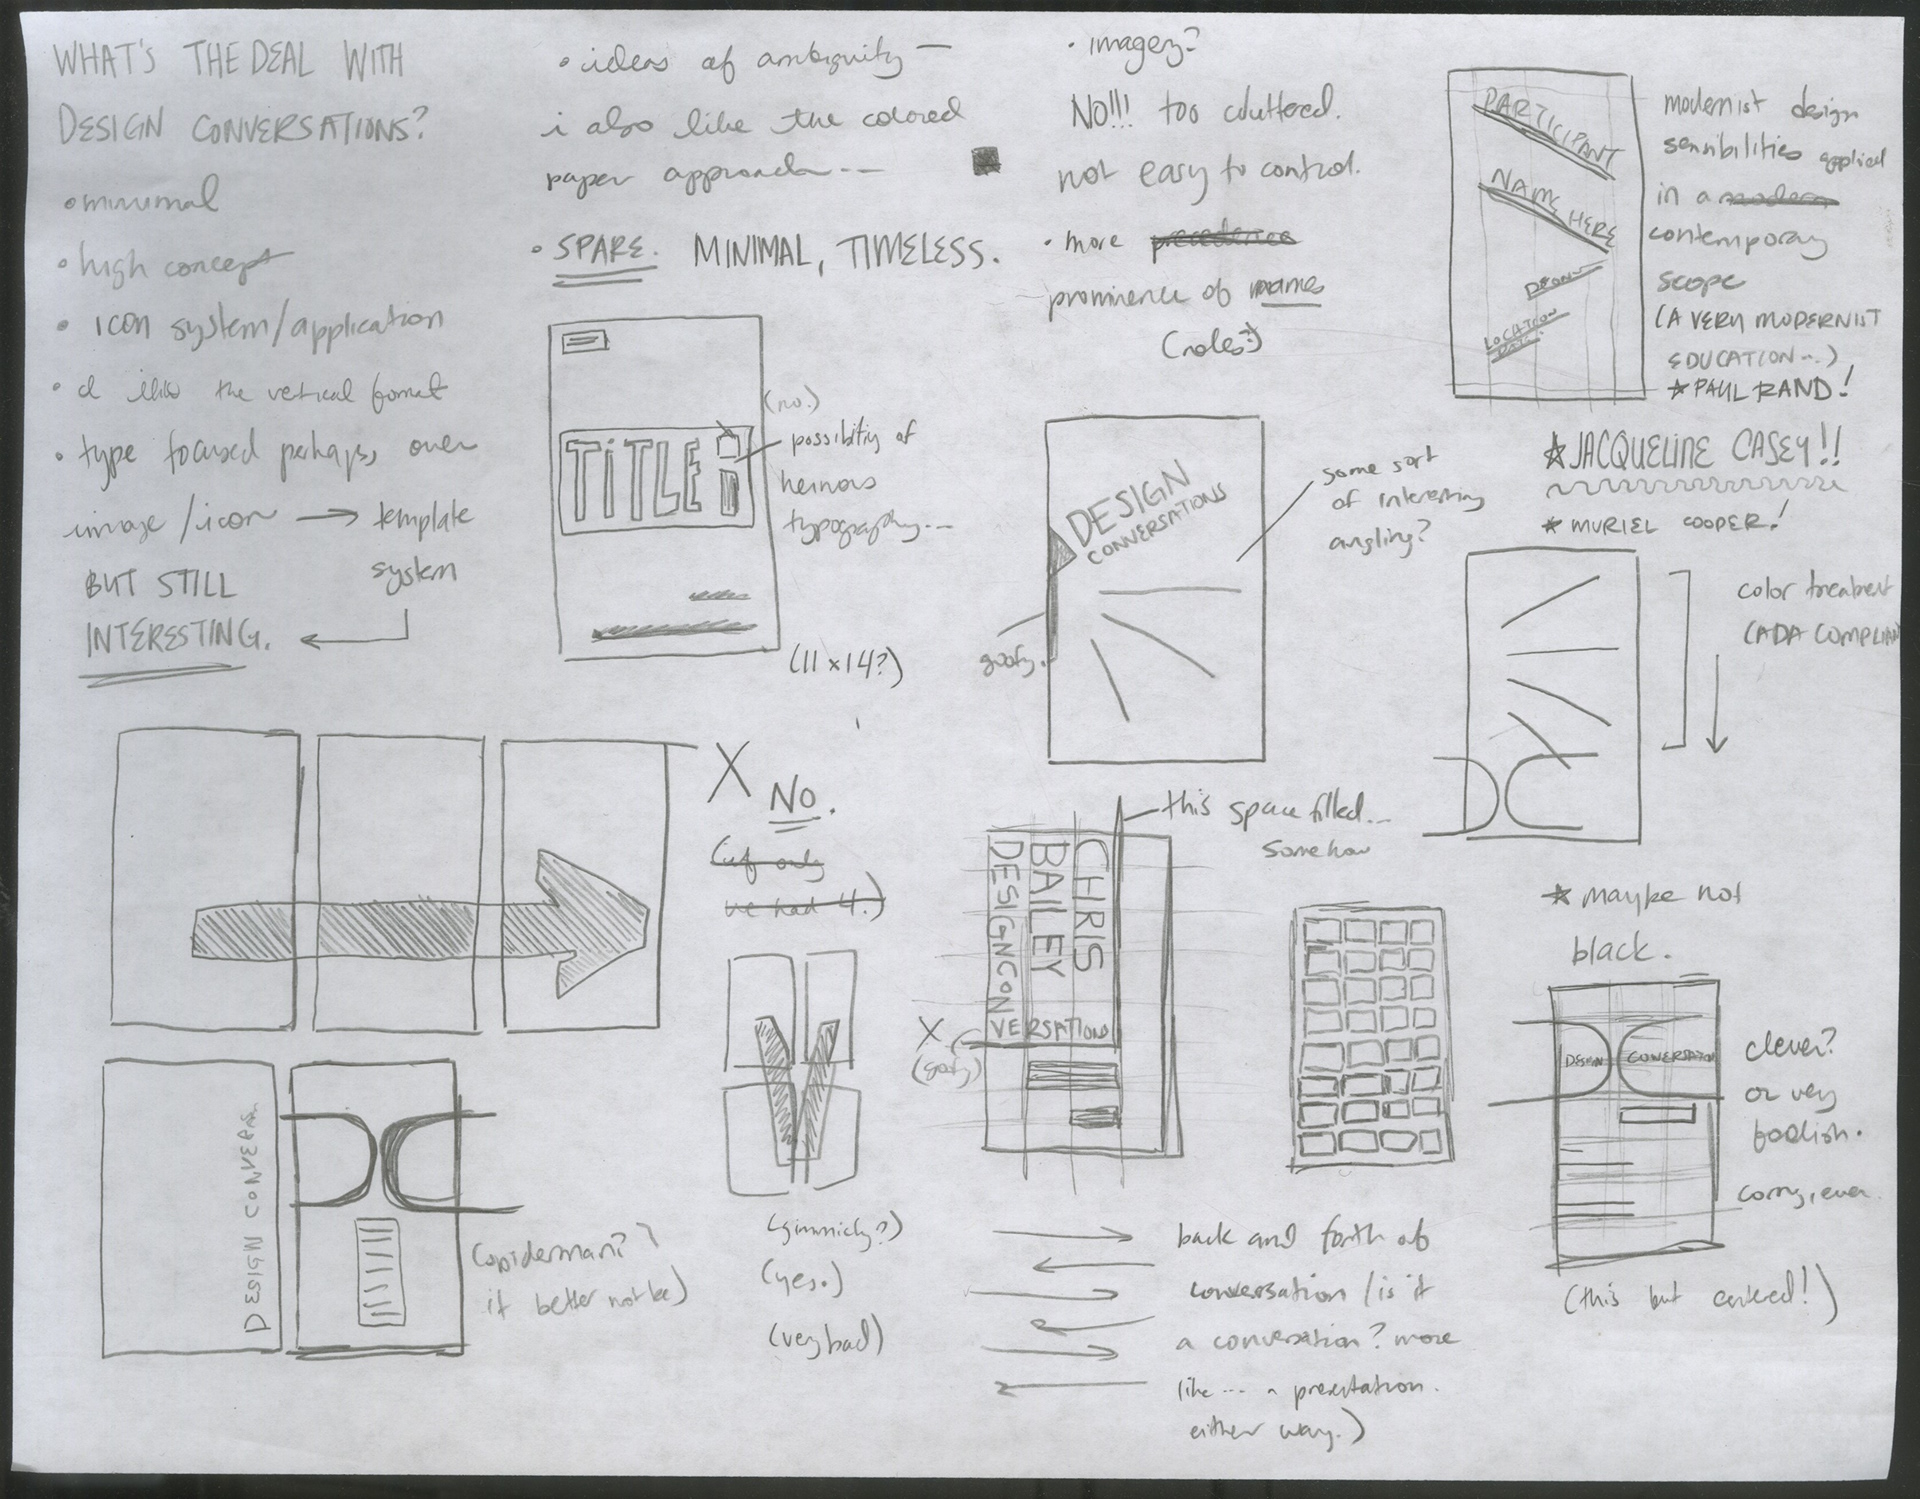 WHAT'S THE DEAL WITH
DESIGN CONVERSATIONS?
• minimal
• high concept
• icon system/application
• i like the vertical format
• type focused perhaps, over
image/icon → template
system
BUT STILL
INTERESTING.
• ideas of ambiguity —
i also like the colored
paper approach...
• SPARE. MINIMAL, TIMELESS.
TITLE
(no.)
possibility of
heinous
typography...
(11 x 14?)
• imagery?
NO!!! too cluttered.
not easy to control.
• more precedence
prominence of names
(roles?)
PARTICIPANT
NAME HERE
LOCATION
modernist design
sensibilities applied
in a modern
contemporary
scope
(A VERY MODERNIST
EDUCATION...)
★ PAUL RAND!
★ JACQUELINE CASEY!!
★ MURIEL COOPER!
DESIGN
CONVERSATIONS
some sort
of interesting
angling?
goofy.
color treatment
(ADA COMPLIAN
X NO.
(if only
we had 4.)
this space filled...
somehow
CHRIS
BAILEY
DESIGN CON
VERSATIONS
X
(goofy)
★ maybe not
black.
DESIGN CONVERSATION
clever?
or very
foolish.
corny, even.
(this but centered!)
DESIGN CONVERSA
(spiderman?
it better not be)
(gimmicky?)
(yes.)
(very bad)
back and forth of
conversation (is it
a conversation? more
like... a presentation.
either way.)